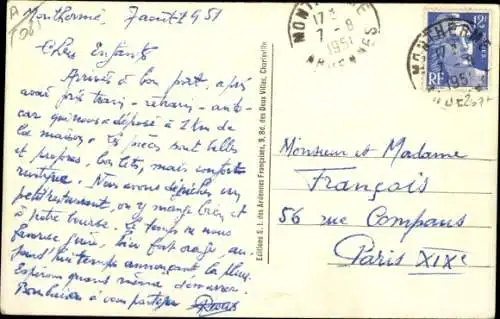 Monthermé, 7 août 1951
Chers Enfants
Arrivés à bon port, après
avoir pris train - retrain - auto-
car qui nous a déposé à 2 km de
la maison. Les pièces sont belles
et propres, bons lits, mais confort
rustique. Nous avons dépêché un
petit restaurant, on y mange bien et
à notre bourse. Le temps ne nous
favorise guère, hier fort orage au-
jourd'hui temps annonçant la pluie.
Espérons quand même démarrer.
Bons baisers à vous partager
MONTHERMÉ
17 H
7 - 8
1951
ARDENNES
12F
MONTHERMÉ
17
1951
RF
Editions G. I. des Ardennes Françaises, 9, Bd. des Deux Villes, Charleville
Monsieur et Madame
François
56 rue Compans
Paris XIXe